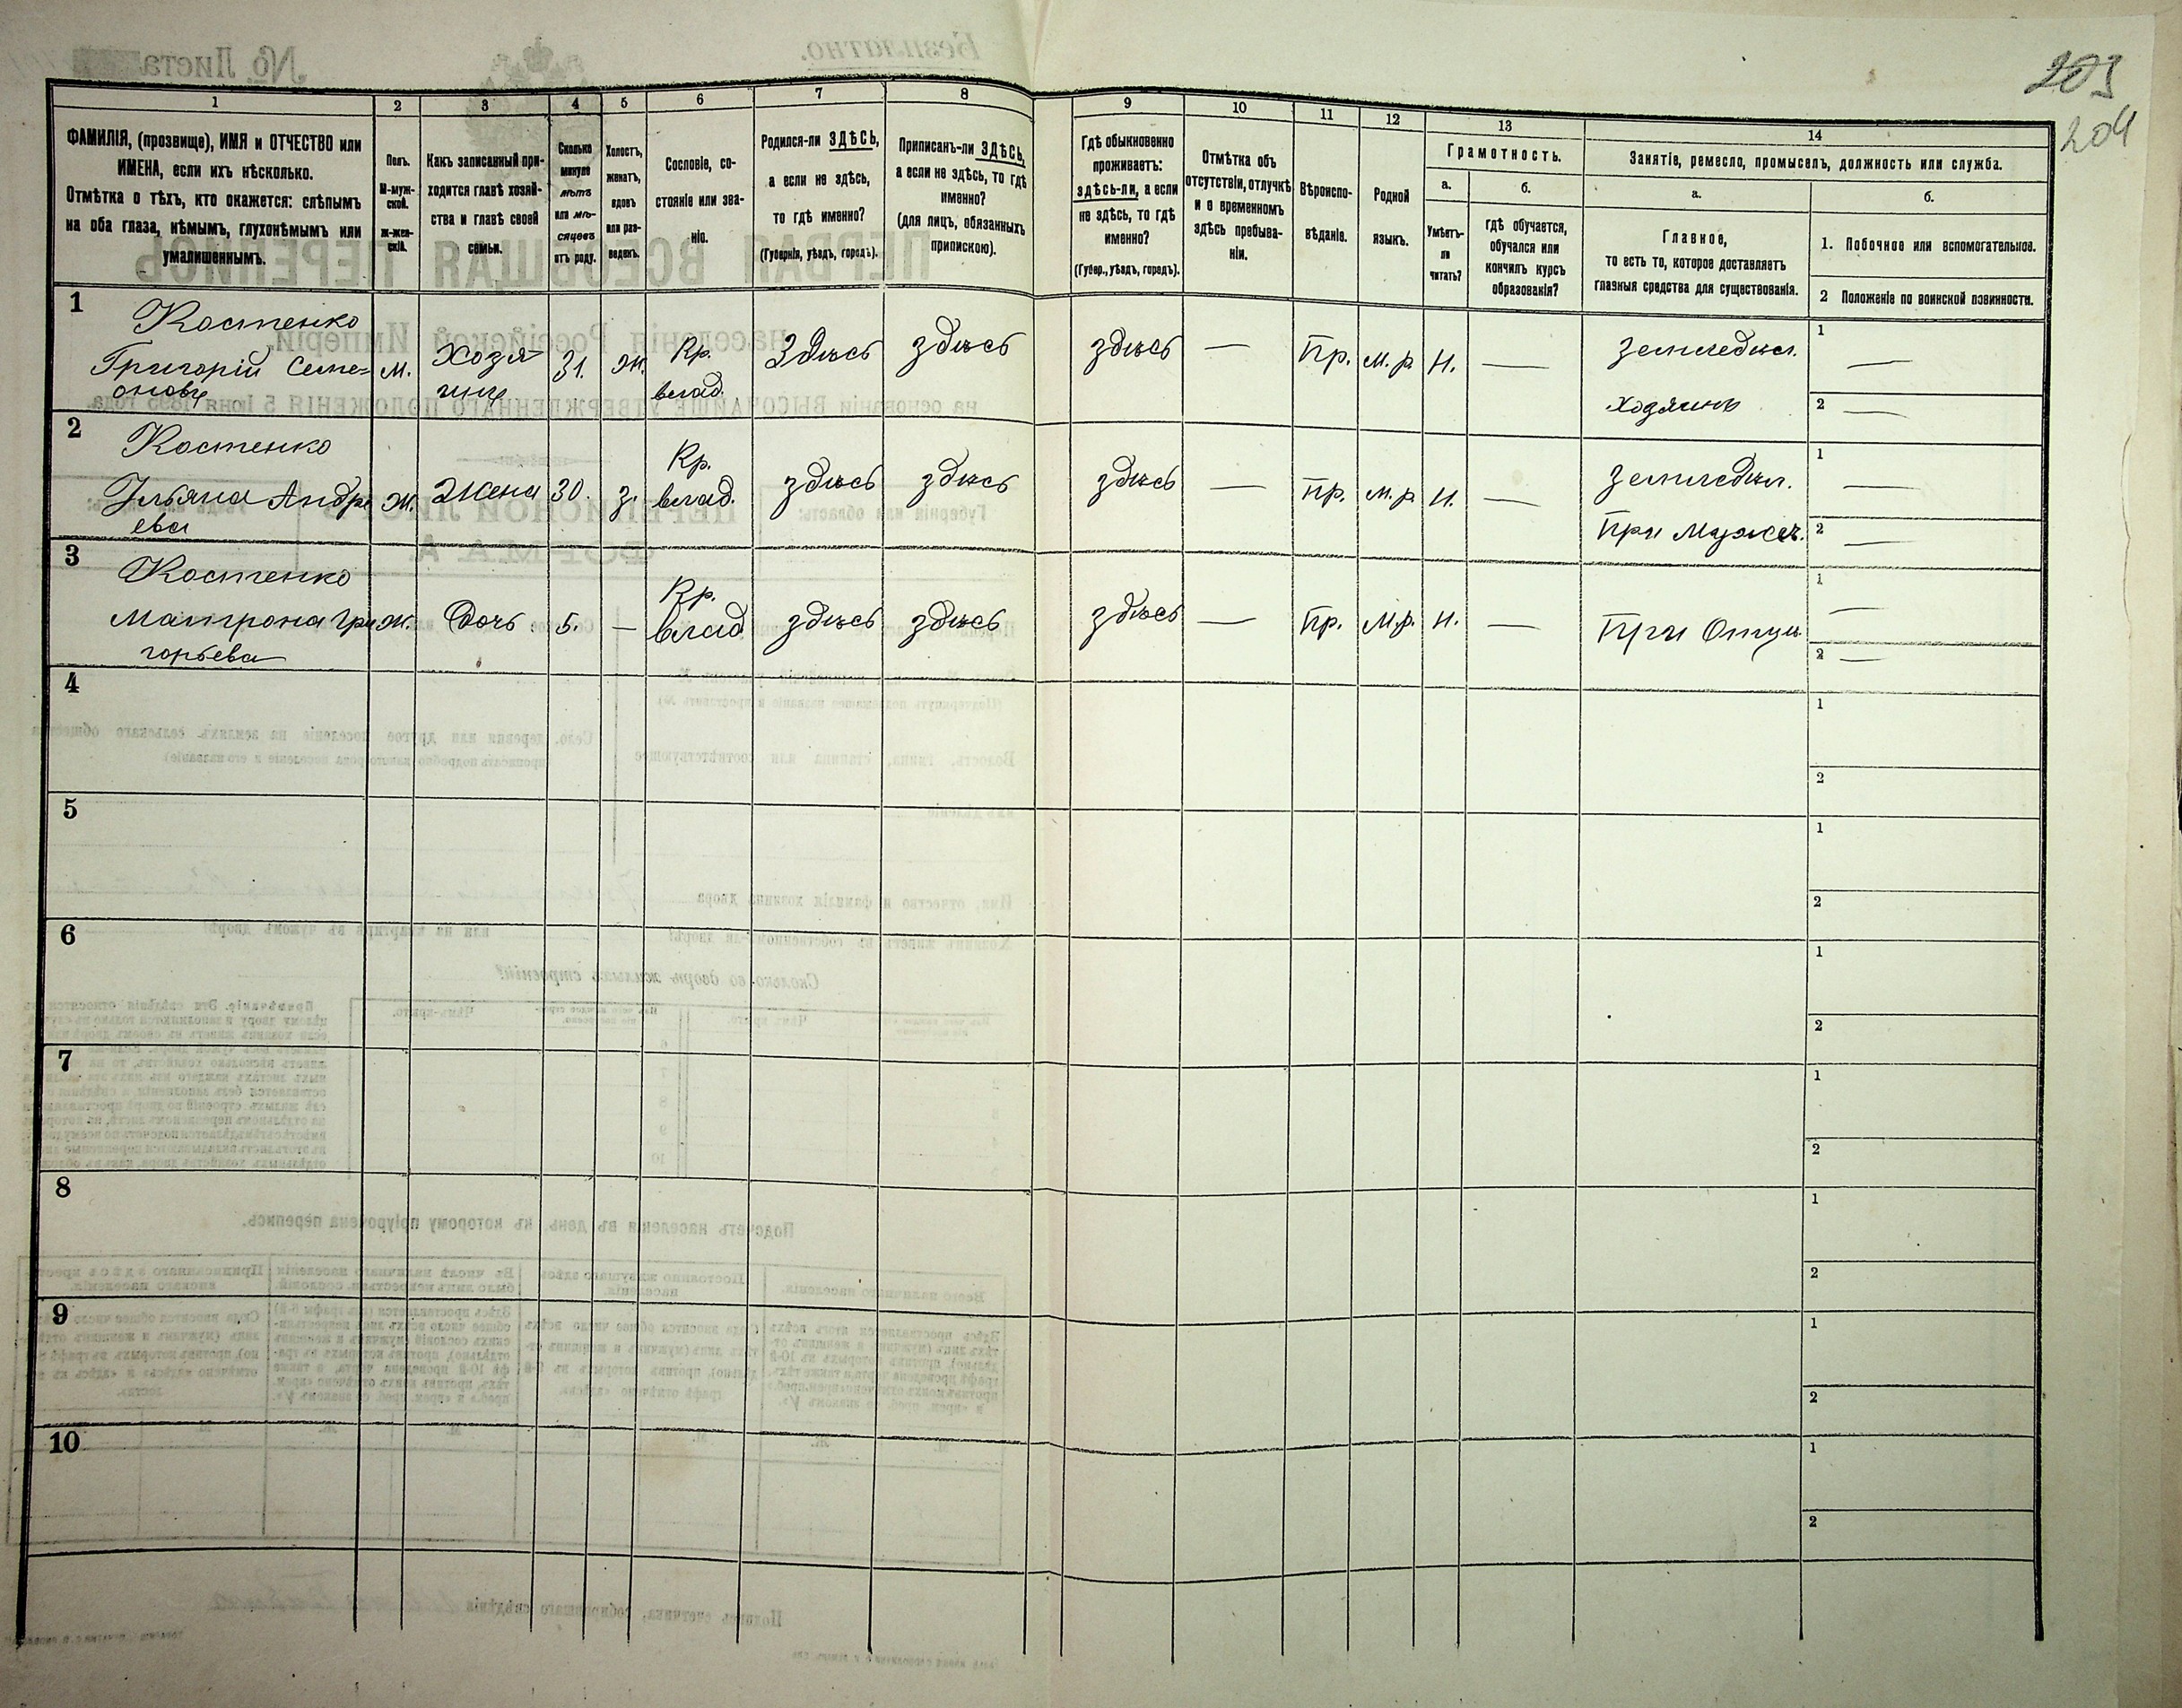 203
204
1
2
3
4
5
6
7
8
9
10
11
12
13
14
ФАМИЛІЯ, (прозвище), ИМЯ и ОТЧЕСТВО или
ИМЕНА, если ихъ нѣсколько.
Отмѣтка о тѣхъ, кто окажется: слѣпымъ
на оба глаза, нѣмымъ, глухонѣмымъ или
умалишеннымъ.
Полъ.
М-муж-
ской.
Ж-жен-
скій.
Какъ записанный при-
ходится главѣ хозяй-
ства и главѣ своей
семьи.
Сколько
минуло
лѣтъ
или мѣ-
сяцевъ
отъ роду.
Холостъ,
женатъ,
вдовъ
или раз-
веденъ.
Сословіе, со-
стояніе или зва-
ніе.
Родился-ли ЗДѢСЬ,
а если не здѣсь,
то гдѣ именно?
(Губернія, уѣздъ, городъ).
Приписанъ-ли ЗДѢСЬ,
а если не здѣсь, то гдѣ
именно?
(для лицъ, обязанныхъ
припискою).
Гдѣ обыкновенно
проживаетъ:
здѣсь-ли, а если
не здѣсь, то гдѣ
именно?
(Губер., уѣздъ, городъ).
Отмѣтка объ
отсутствіи, отлучкѣ
и о временномъ
здѣсь пребыва-
ніи.
Вѣроиспо-
вѣданіе.
Родной
языкъ.
Грамотность.
а.
б.
Умѣетъ-
ли
читать?
гдѣ обучается,
обучался или
кончилъ курсъ
образованія?
Занятіе, ремесло, промыселъ, должность или служба.
а.
б.
Главное,
то есть то, которое доставляетъ
главныя средства для существованія.
1. Побочное или вспомогательное.
2 Положеніе по воинской повинности.
1
Костенко
Григорій Семе=
оновъ
м.
Хозя
инъ
31.
ж.
Кр.
влад.
Здѣсь
здѣсь
здѣсь
—
Пр.
м.р.
Н.
—
Земледѣл.
хозяинъ
1 —
2 —
2
Костенко
Ульяна Андре
ева
ж.
Жена
30.
з.
Кр.
влад.
здѣсь
здѣсь
здѣсь
—
Пр.
м.р.
Н.
—
Земледѣл.
При Мужѣ.
1 —
2 —
3
Костенко
Матрона Гри
горьева
ж.
Дочь
5.
—
Кр.
влад
здѣсь
здѣсь
здѣсь
—
Пр.
М.р.
Н.
—
При Отцѣ.
1 —
2 —
4
1
2
5
1
2
6
1
2
7
1
2
8
1
2
9
1
2
10
1
2